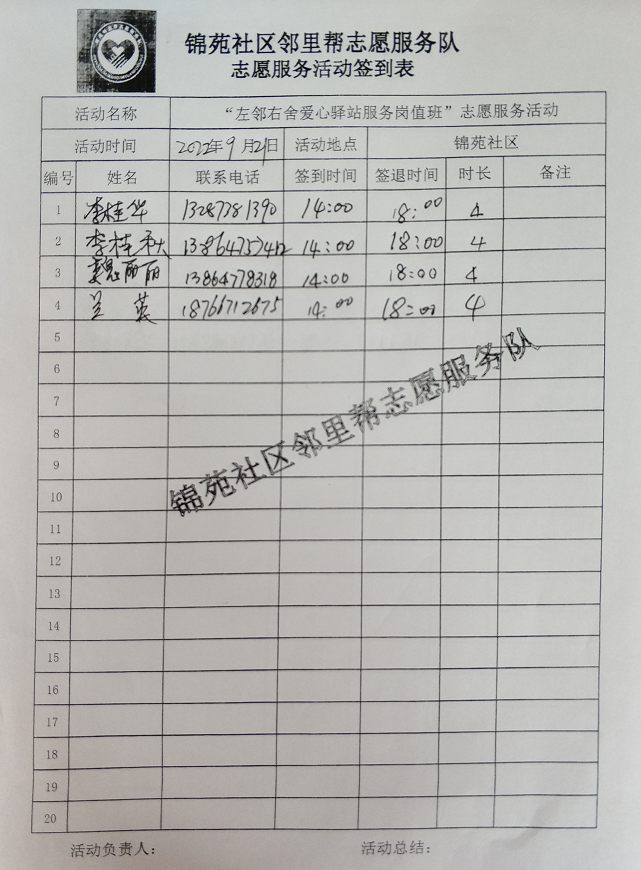 锦苑社区邻里帮志愿服务队
志愿服务活动签到表
活动名称 “左邻右舍爱心驿站服务岗值班”志愿服务活动
活动时间 2022年9月21日 活动地点 锦苑社区
编号 姓名 联系电话 签到时间 签退时间 时长 备注
1 李桂华 13287781390 14:00 18:00 4
2 李桂秋 13864757412 14:00 18:00 4
3 魏丽丽 13864778318 14:00 18:00 4
4 兰英 18766712675 14:00 18:00 4
5
6
7
8
9
10
11
12
13
14
15
16
17
18
19
20
锦苑社区邻里帮志愿服务队
活动负责人: 活动总结: